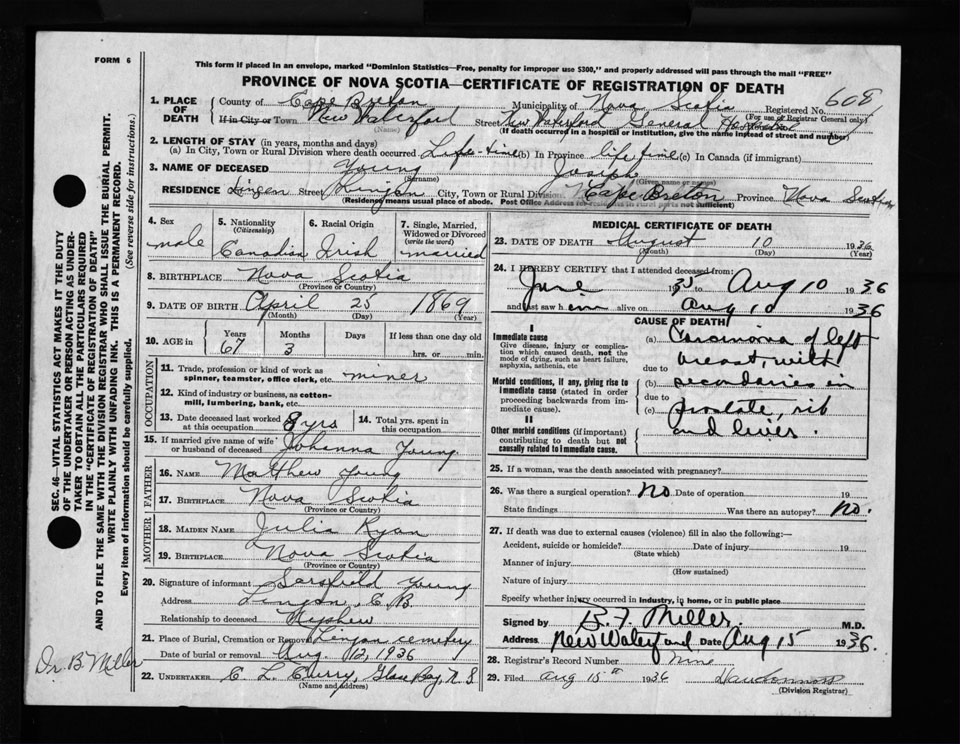 FORM 6
This form if placed in an envelope, marked "Dominion Statistics—Free, penalty for improper use $300," and properly addressed will pass through the mail "FREE"
PROVINCE OF NOVA SCOTIA—CERTIFICATE OF REGISTRATION OF DEATH
1. PLACE OF DEATH County of Cape Breton Municipality of Nova Scotia Registered No. 608
(For use of Registrar General only)
If in City or Town New Waterford Street New Waterford General Hospital
(Name) (If death occurred in a hospital or institution, give the name instead of street and number)
2. LENGTH OF STAY (in years, months and days)
(a) In City, Town or Rural Division where death occurred Life-time (b) In Province life time (c) In Canada (if immigrant)
3. NAME OF DECEASED Young Joseph
(Surname) (Given name or names)
RESIDENCE Lingan Street Lingan City, Town or Rural Division Cape Breton Province Nova Scotia
(Residence means usual place of abode. Post Office Address for residence in rural parts not sufficient)
4. Sex male
5. Nationality (Citizenship) Canadian
6. Racial Origin Irish
7. Single, Married, Widowed or Divorced (write the word) married
8. BIRTHPLACE Nova Scotia
(Province or Country)
9. DATE OF BIRTH April 25 1869
(Month) (Day) (Year)
10. AGE in Years 67 Months 3 Days If less than one day old
hrs. or min.
OCCUPATION
11. Trade, profession or kind of work as spinner, teamster, office clerk, etc. miner
12. Kind of industry or business, as cotton-mill, lumbering, bank, etc.
13. Date deceased last worked at this occupation 8 yrs
14. Total yrs. spent in this occupation
15. If married give name of wife or husband of deceased Johanna Young
FATHER
16. NAME Matthew Young
17. BIRTHPLACE Nova Scotia
(Province or Country)
MOTHER
18. MAIDEN NAME Julia Ryan
19. BIRTHPLACE Nova Scotia
(Province or Country)
20. Signature of informant Sarsfield Young
Address Lingan, C.B.
Relationship to deceased Nephew
21. Place of Burial, Cremation or Removal Lingan cemetery
Date of burial or removal Aug. 12, 1936
22. UNDERTAKER E. L. Curry, Glace Bay, N S
(Name and address)
MEDICAL CERTIFICATE OF DEATH
23. DATE OF DEATH August 10 1936
(Month) (Day) (Year)
24. I HEREBY CERTIFY that I attended deceased from:
June 1935 to Aug 10 1936
and last saw him alive on Aug 10 1936
CAUSE OF DEATH
I
Immediate cause
Give disease, injury or complication which caused death, not the mode of dying, such as heart failure, asphyxia, asthenia, etc
Morbid conditions, if any, giving rise to immediate cause (stated in order proceeding backwards from immediate cause).
II
Other morbid conditions (if important) contributing to death but not causally related to immediate cause.
(a) Carcinoma of left
due to breast, with
(b) secondaries in
due to
(c) prostate, rib
and liver.
25. If a woman, was the death associated with pregnancy?
26. Was there a surgical operation? No Date of operation 19
State findings Was there an autopsy? No.
27. If death was due to external causes (violence) fill in also the following:—
Accident, suicide or homicide? Date of injury 19
(State which)
Manner of injury
(How sustained)
Nature of injury
Specify whether injury occurred in industry, in home, or in public place
Signed by B. F. Miller. M.D.
Address New Waterford Date Aug 15 1936.
28. Registrar's Record Number Nine
29. Filed Aug 15th 1936
(Division Registrar)
SEC. 46—VITAL STATISTICS ACT MAKES IT THE DUTY
OF THE UNDERTAKER OR PERSON ACTING AS UNDER-
TAKER TO OBTAIN ALL THE PARTICULARS REQUIRED
IN THE "CERTIFICATE OF REGISTRATION OF DEATH"
AND TO FILE THE SAME WITH THE DIVISION REGISTRAR WHO SHALL ISSUE THE BURIAL PERMIT.
WRITE PLAINLY WITH UNFADING INK. THIS IS A PERMANENT RECORD.
Every item of information should be carefully supplied. (See reverse side for instructions.)
Dr. B. Miller